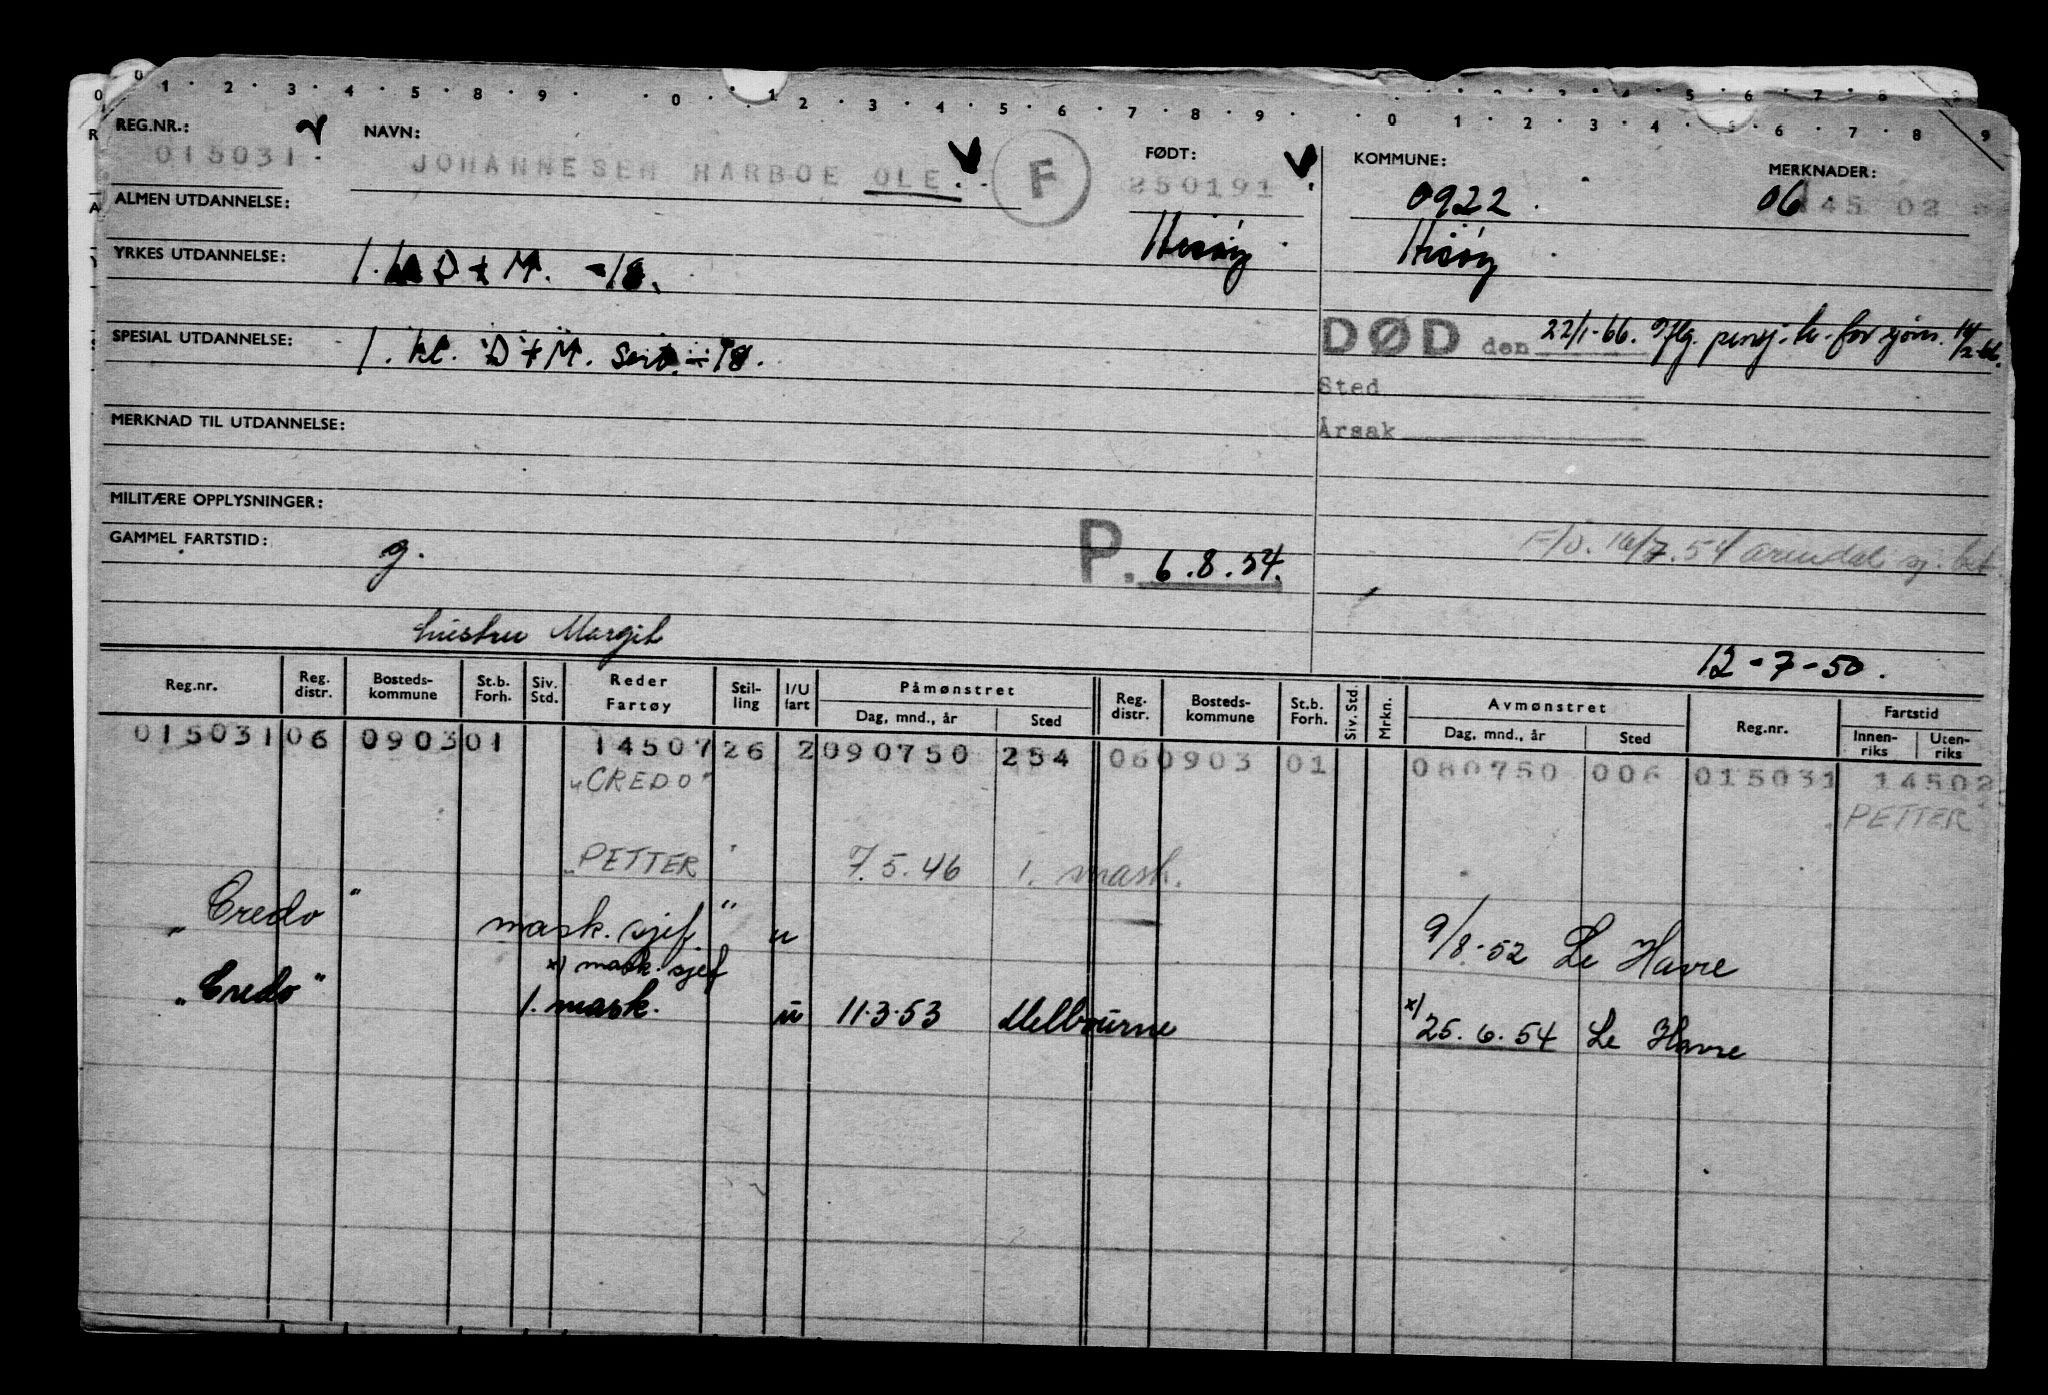 0 1 2 3 4 5 8 9 0 1 2 3 4 5 6 7 8 9 0 1 2 3 4 5 6 7 8 9
REG.NR.: NAVN: FØDT: KOMMUNE: MERKNADER:
015031. JOHANNESEN HARBOE OLE. F 250191 0922. 06 145 02
ALMEN UTDANNELSE: Hisøy Hisøy
YRKES UTDANNELSE: 1. kl D + M. -18.
SPESIAL UTDANNELSE: 1. kl. D + M. sert. -18.
DØD den 22/1-66. Iflg. pensj. tr. for sjøm. 14/2-66.
Sted
Årsak
MERKNAD TIL UTDANNELSE:
MILITÆRE OPPLYSNINGER:
GAMMEL FARTSTID: g. P. 6.8.54. 16/7.54 Arendal sj.
hustru Margit
12-7-50.
Reg.nr. Reg. distr. Bosteds-kommune St.b. Forh. Siv. Std. Reder Fartøy Stil-ling I/U fart Påmønstret Dag, mnd., år Sted Reg. distr. Bosteds-kommune St.b. Forh. Siv. Std. Mrkn. Avmønstret Dag, mnd., år Sted Reg.nr. Fartstid Innen-riks Uten-riks
015031 06 0903 01 14507 26 2 090750 234 06 0903 01 080750 006 015031 14502
"CREDO" "PETTER"
"PETTER" 7.5.46 1. mask.
"Credo" mask. sjef " u 9/8-52 Le Havre
x) mask. sjef
"Credo" 1. mask. u 11.3.53 Melbourne x) 25.6.54 Le Havre